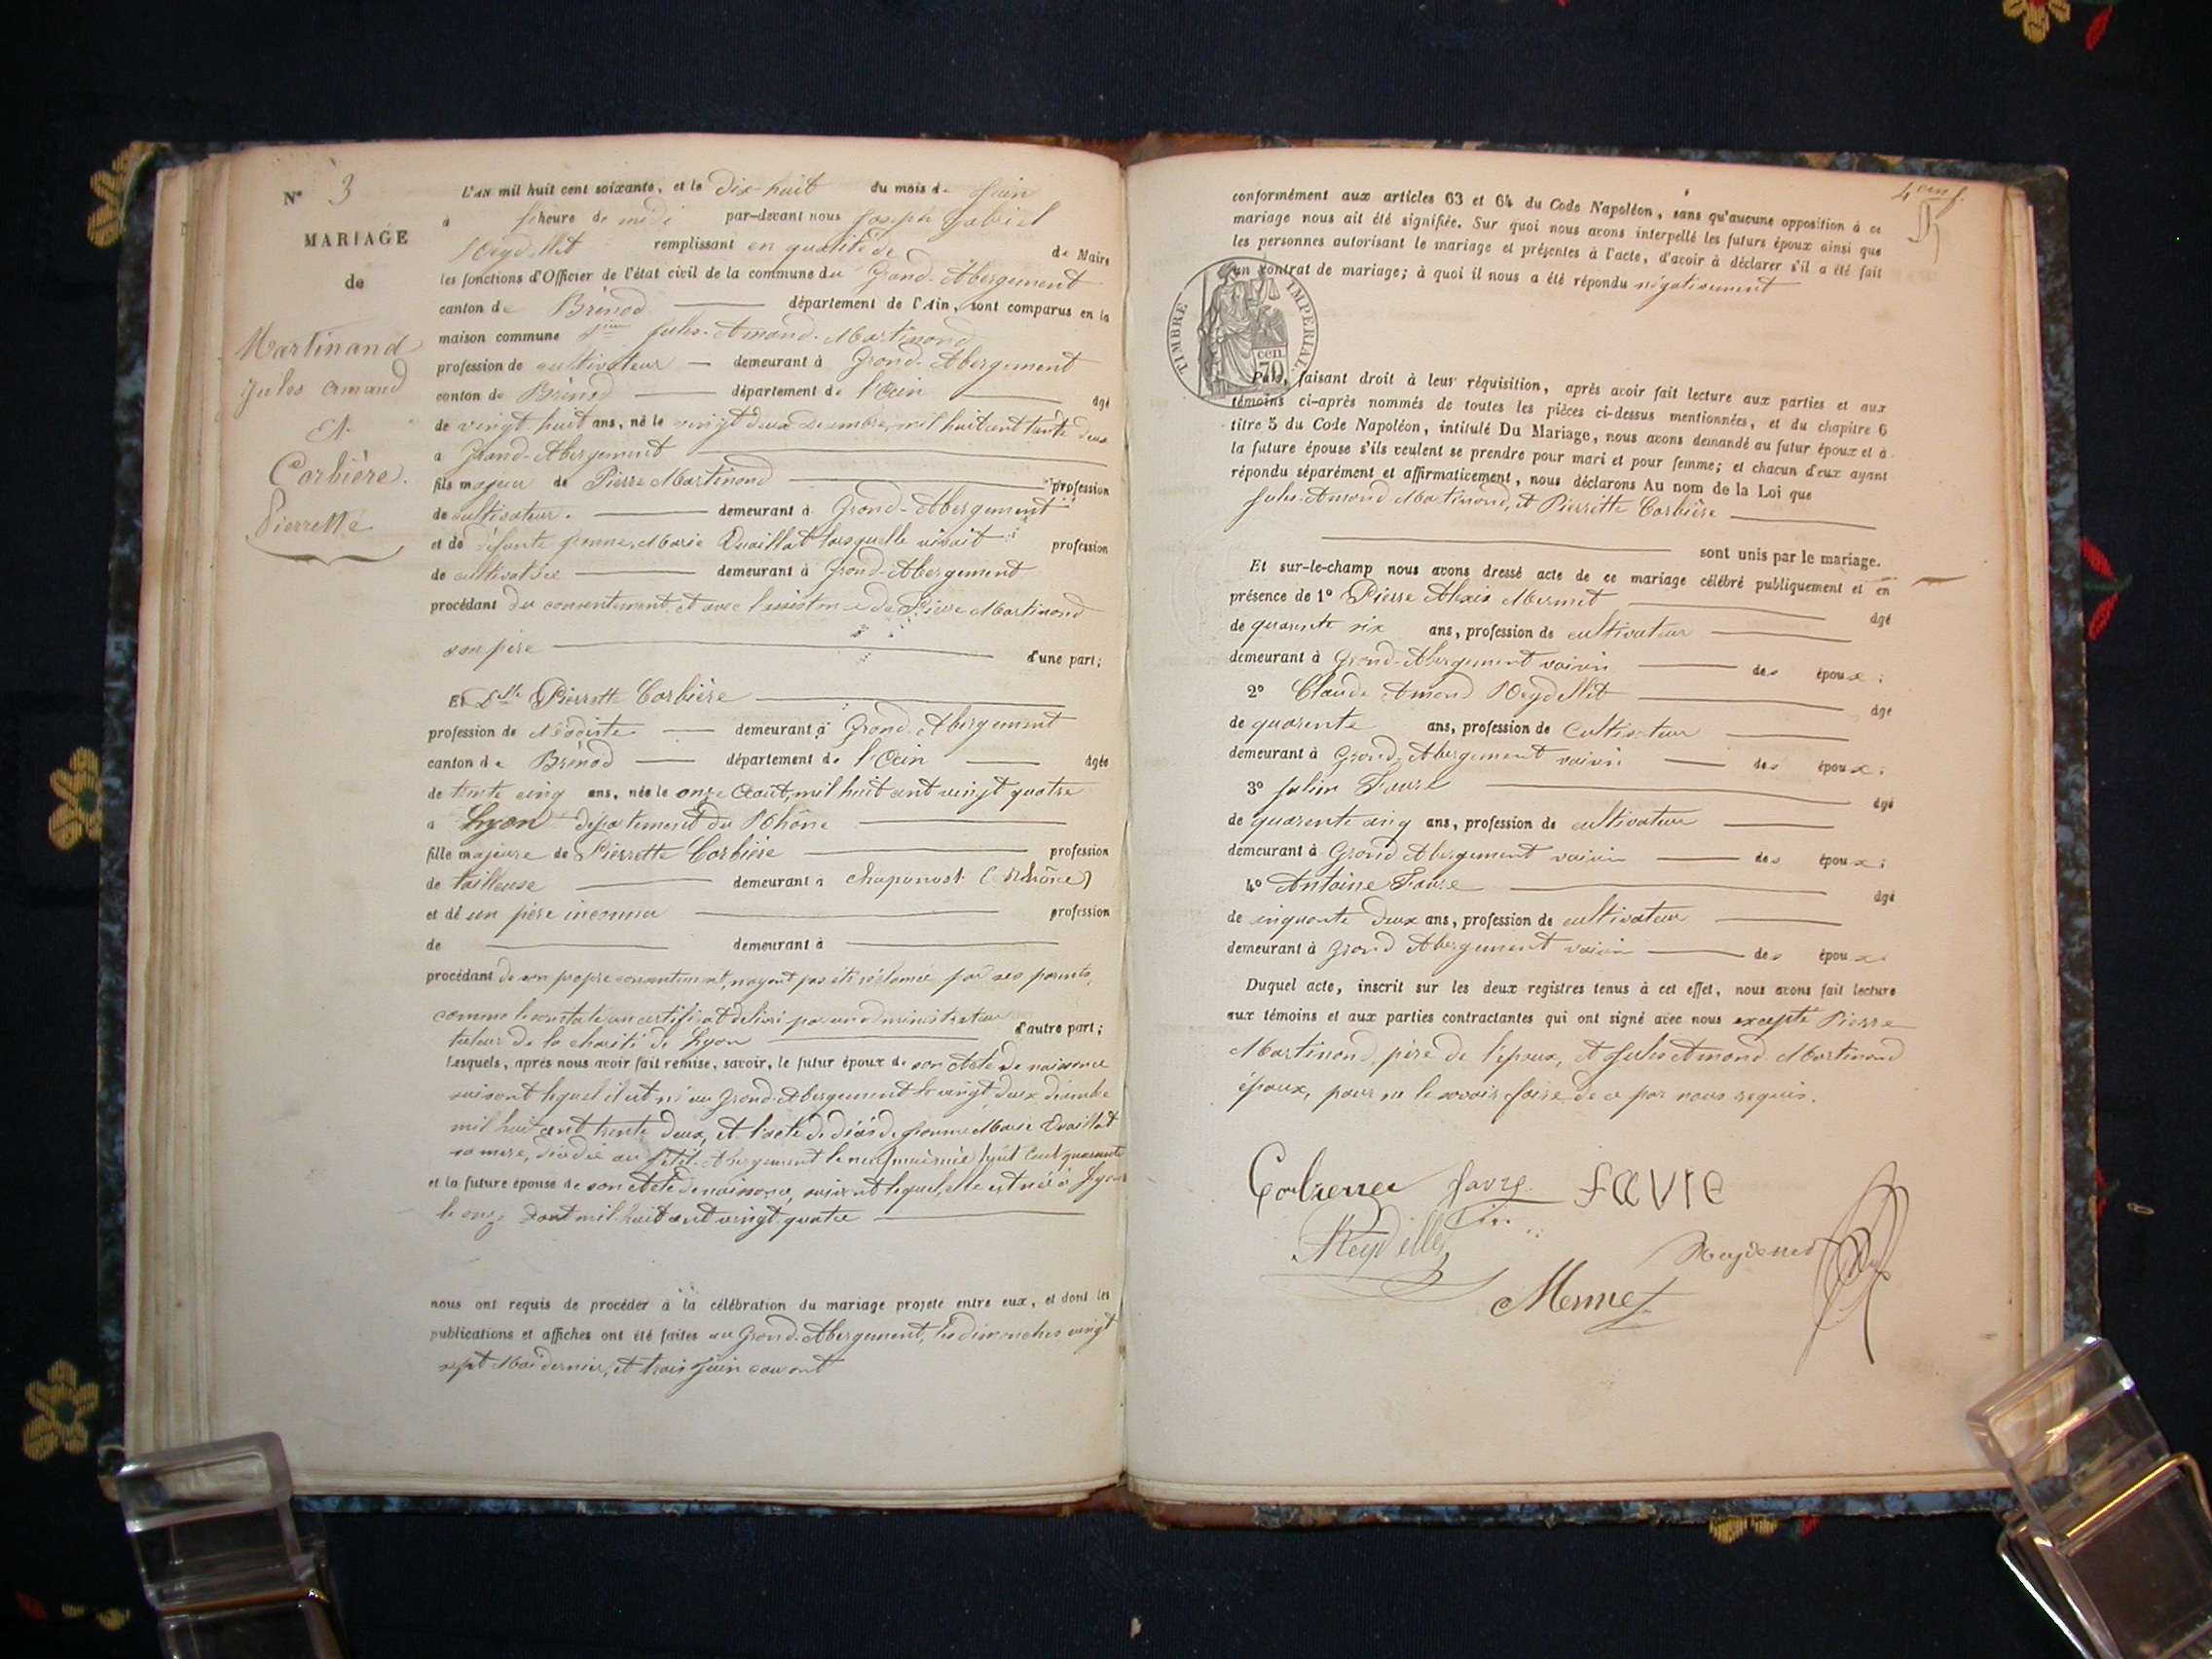 N° 3
MARIAGE
de
Martinand
Jules Amand
Et
Corbière
Pierrette
L'AN mil huit cent soixante, et le dix-huit du mois de Juin
à heure de midi par-devant nous Joseph Gabriel
Reydellet remplissant en qualité de de Maire
les fonctions d'Officier de l'état civil de la commune du Grand-Abergement
canton de Brénod département de l'Ain, sont comparus en la
maison commune Jules-Amand-Martinand
profession de cultivateur demeurant à Grand-Abergement
canton de Brénod département de l'Ain âgé
de vingt huit ans, né le vingt deux décembre mil huit cent trente deux
à Grand-Abergement
fils majeur de Pierre Martinand profession
de cultivateur demeurant à Grand-Abergement
et de défunte Jeanne Marie lorsquelle vivait profession
de cultivatrice demeurant à Grand-Abergement
procédant du consentement et avec l'assistance de Pierre Martinand
son père d'une part;
Et Dlle Pierrette Corbière
profession de Modiste demeurant à Grand-Abergement
canton de Brénod département de l'Ain âgée
de trente cinq ans, née le onze Août mil huit cent vingt quatre
à Lyon département du Rhône
fille majeure de Pierrette Corbière profession
de tailleuse demeurant à chaponost (Rhône)
et de un père inconnu profession
de demeurant à
procédant de son propre consentement, n'ayant pas été réclamée par ses parents,
comme le constate un certificat délivré par un administrateur
tuteur de la charité de Lyon d'autre part;
Lesquels, après nous avoir fait remise, savoir, le futur époux de son Acte de naissance
suivant lequel il est né au Grand-Abergement le vingt deux décembre
mil huit cent trente deux, et l'acte de décès de Jeanne Marie
sa mère, décédée au Petit-Abergement le neuf mil huit cent quarante
et la future épouse de son Acte de naissance, suivant lequel elle est née à Lyon
le onze Août mil huit cent vingt quatre
nous ont requis de procéder à la célébration du mariage projeté entre eux, et dont les
publications et affiches ont été faites au Grand-Abergement, les dimanches vingt
sept Mai dernier, et trois Juin courant
conformément aux articles 63 et 64 du Code Napoléon, sans qu'aucune opposition à ce
mariage nous ait été signifiée. Sur quoi nous avons interpellé les futurs époux ainsi que
les personnes autorisant le mariage et présentes à l'acte, d'avoir à déclarer s'il a été fait
un contrat de mariage; à quoi il nous a été répondu négativement
TIMBRE IMPERIAL
70 cen
Puis, faisant droit à leur réquisition, après avoir fait lecture aux parties et aux
témoins ci-après nommés de toutes les pièces ci-dessus mentionnées, et du chapitre 6
titre 5 du Code Napoléon, intitulé Du Mariage, nous avons demandé au futur époux et à
la future épouse s'ils veulent se prendre pour mari et pour femme; et chacun d'eux ayant
répondu séparément et affirmativement, nous déclarons Au nom de la Loi que
Jules-Amand Martinand, et Pierrette Corbière
sont unis par le mariage.
Et sur-le-champ nous avons dressé acte de ce mariage célébré publiquement et en
présence de 1° Pierre Alexis Mermet âgé
de quarente six ans, profession de cultivateur
demeurant à Grand-Abergement voisin des époux;
2° Claude Amand Reydellet âgé
de quarente ans, profession de Cultivateur
demeurant à Grand-Abergement voisin des époux;
3° Julien Favre âgé
de quarente cinq ans, profession de cultivateur
demeurant à Grand Abergement voisin des époux;
4° Antoine Favre âgé
de cinquante deux ans, profession de cultivateur
demeurant à Grand Abergement voisin des époux
Duquel acte, inscrit sur les deux registres tenus à cet effet, nous avons fait lecture
aux témoins et aux parties contractantes qui ont signé avec nous excepté Pierre
Martinand, père de l'époux, et Jules Amand Martinand
époux, pour ne le savoir faire de ce par nous requis.
Corbierre favre favre
Reydellet
Mermet